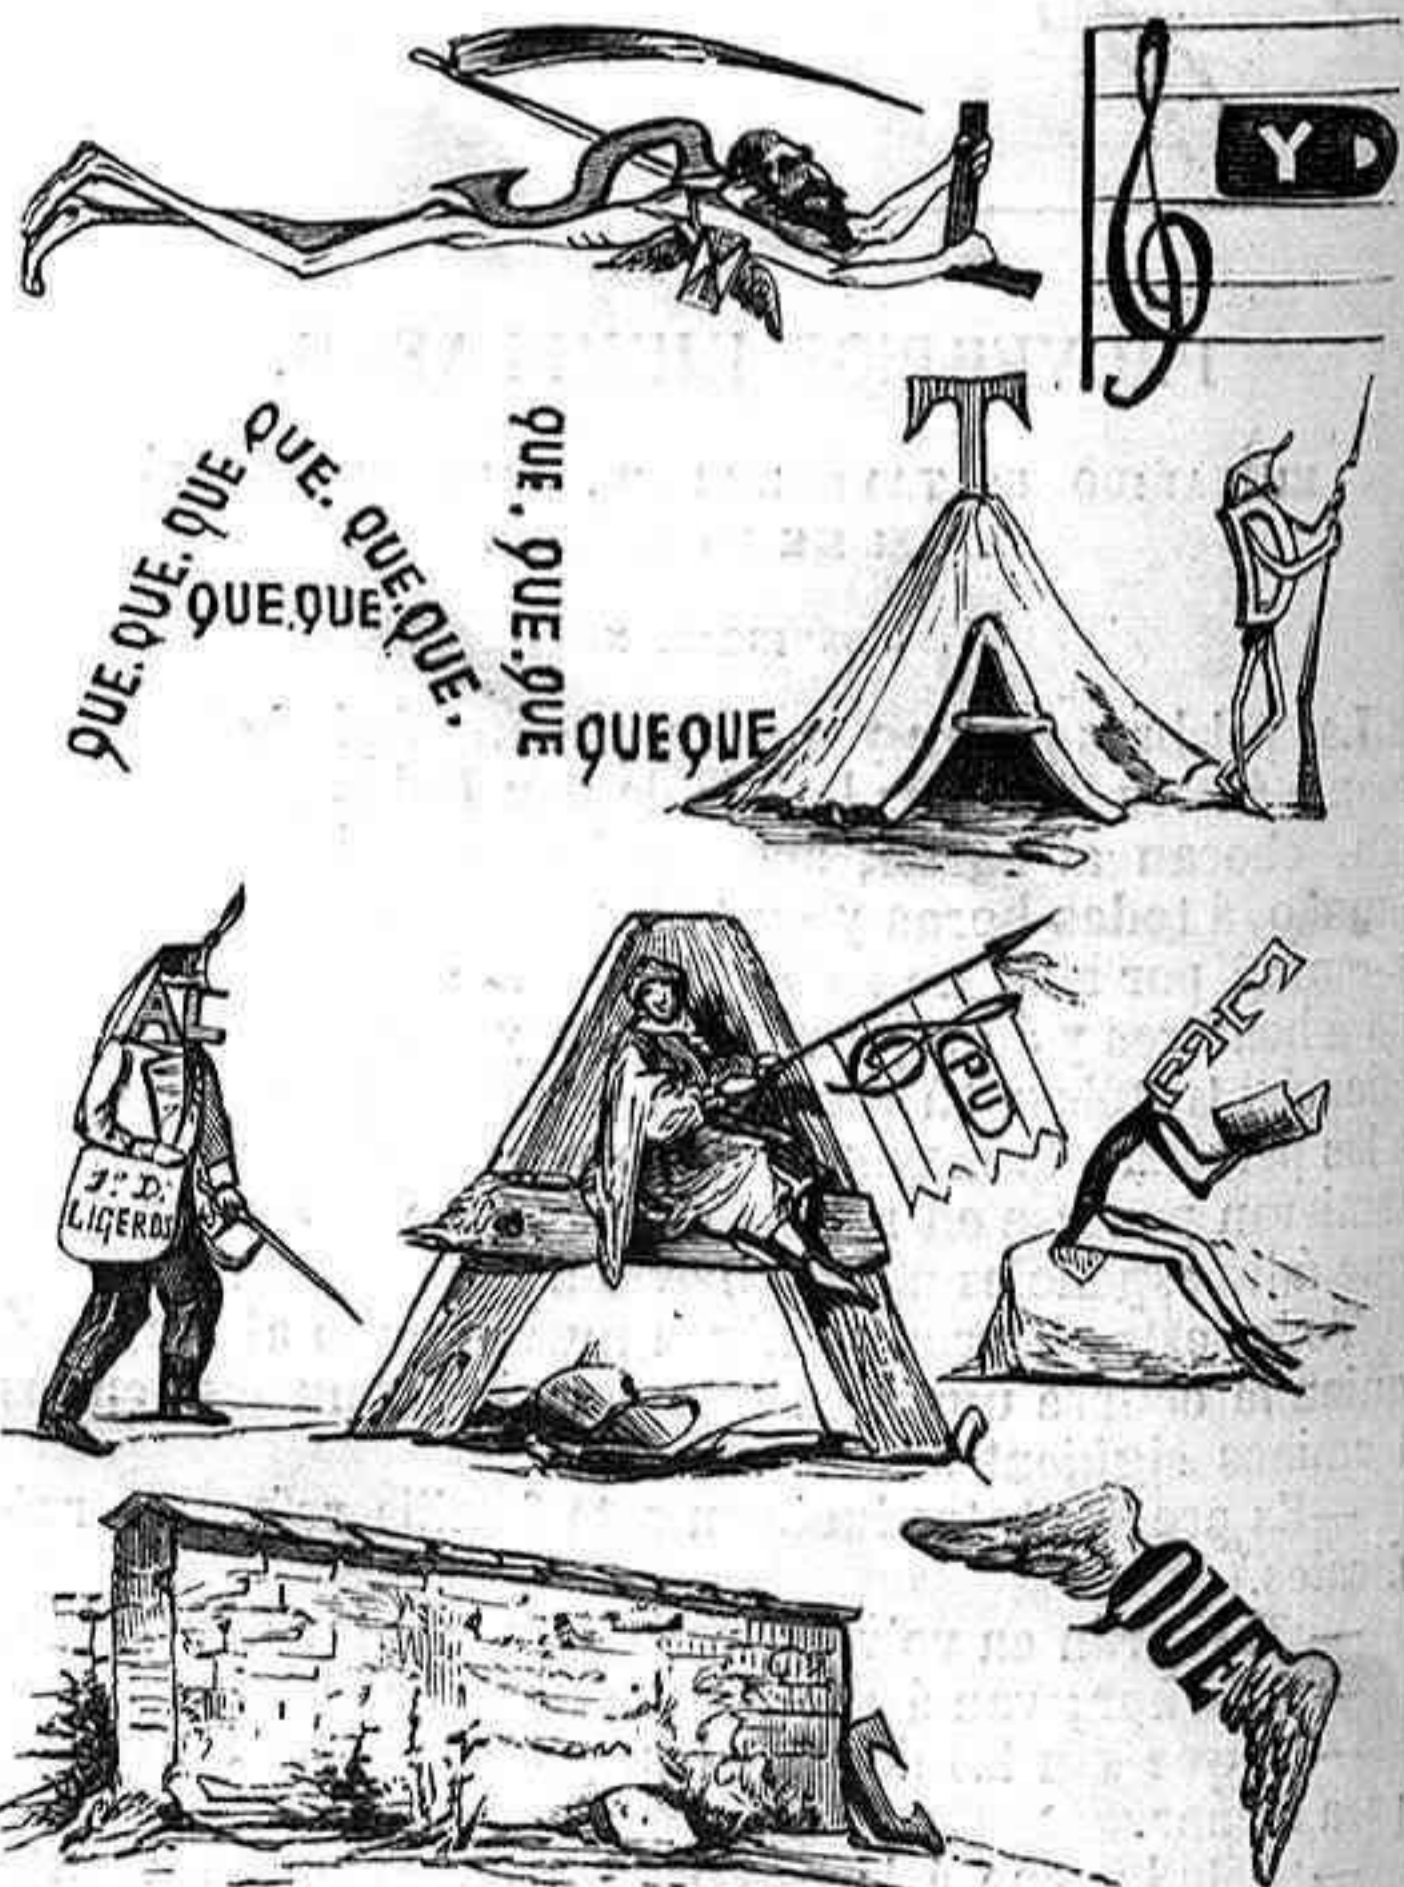 Y D
QUE. QUE. QUE QUE. QUE. QUE,
QUE. QUE
QUE. QUE. QUE
QUE QUE
T
D
AL
1º D.
LIGEROS
A
PU
QUE